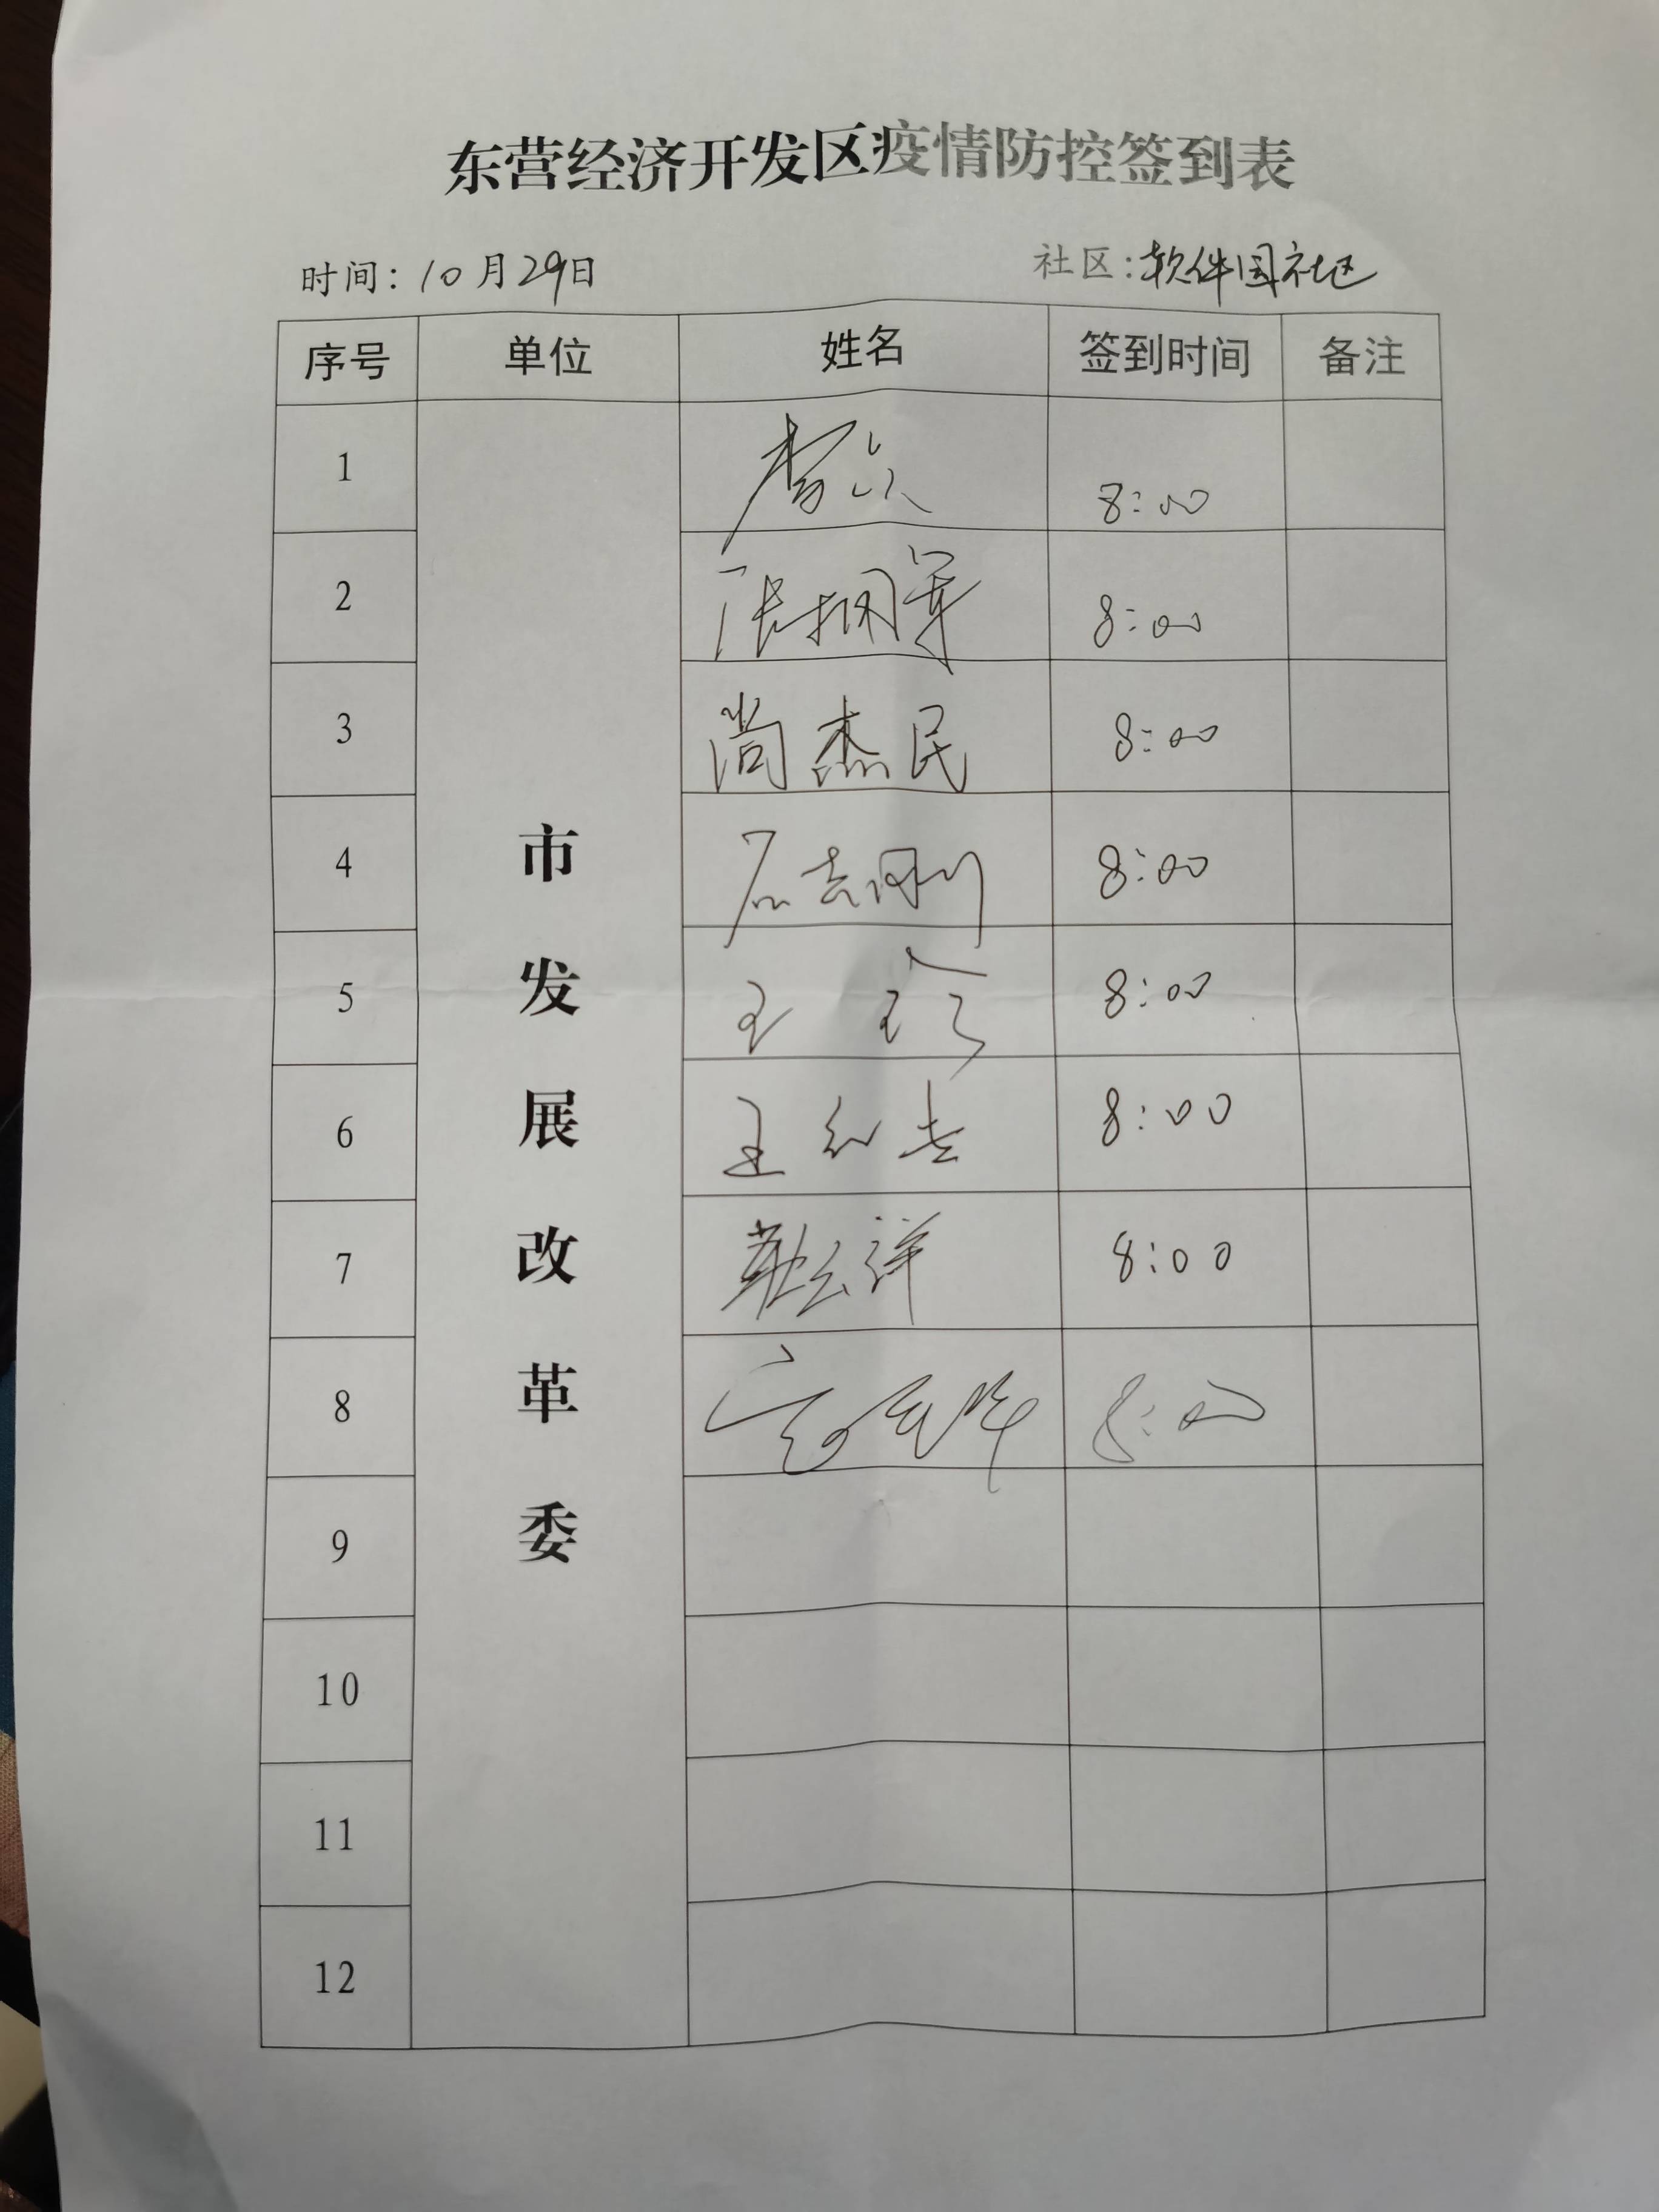 东营经济开发区疫情防控签到表
时间：10月29日 社区：软件园社区
序号 单位 姓名 签到时间 备注
市发展改革委
1 8:00
2 8:00
3 尚杰民 8:00
4 石志刚 8:00
5 王 8:00
6 王 8:00
7 祥 8:00
8 8:00
9
10
11
12